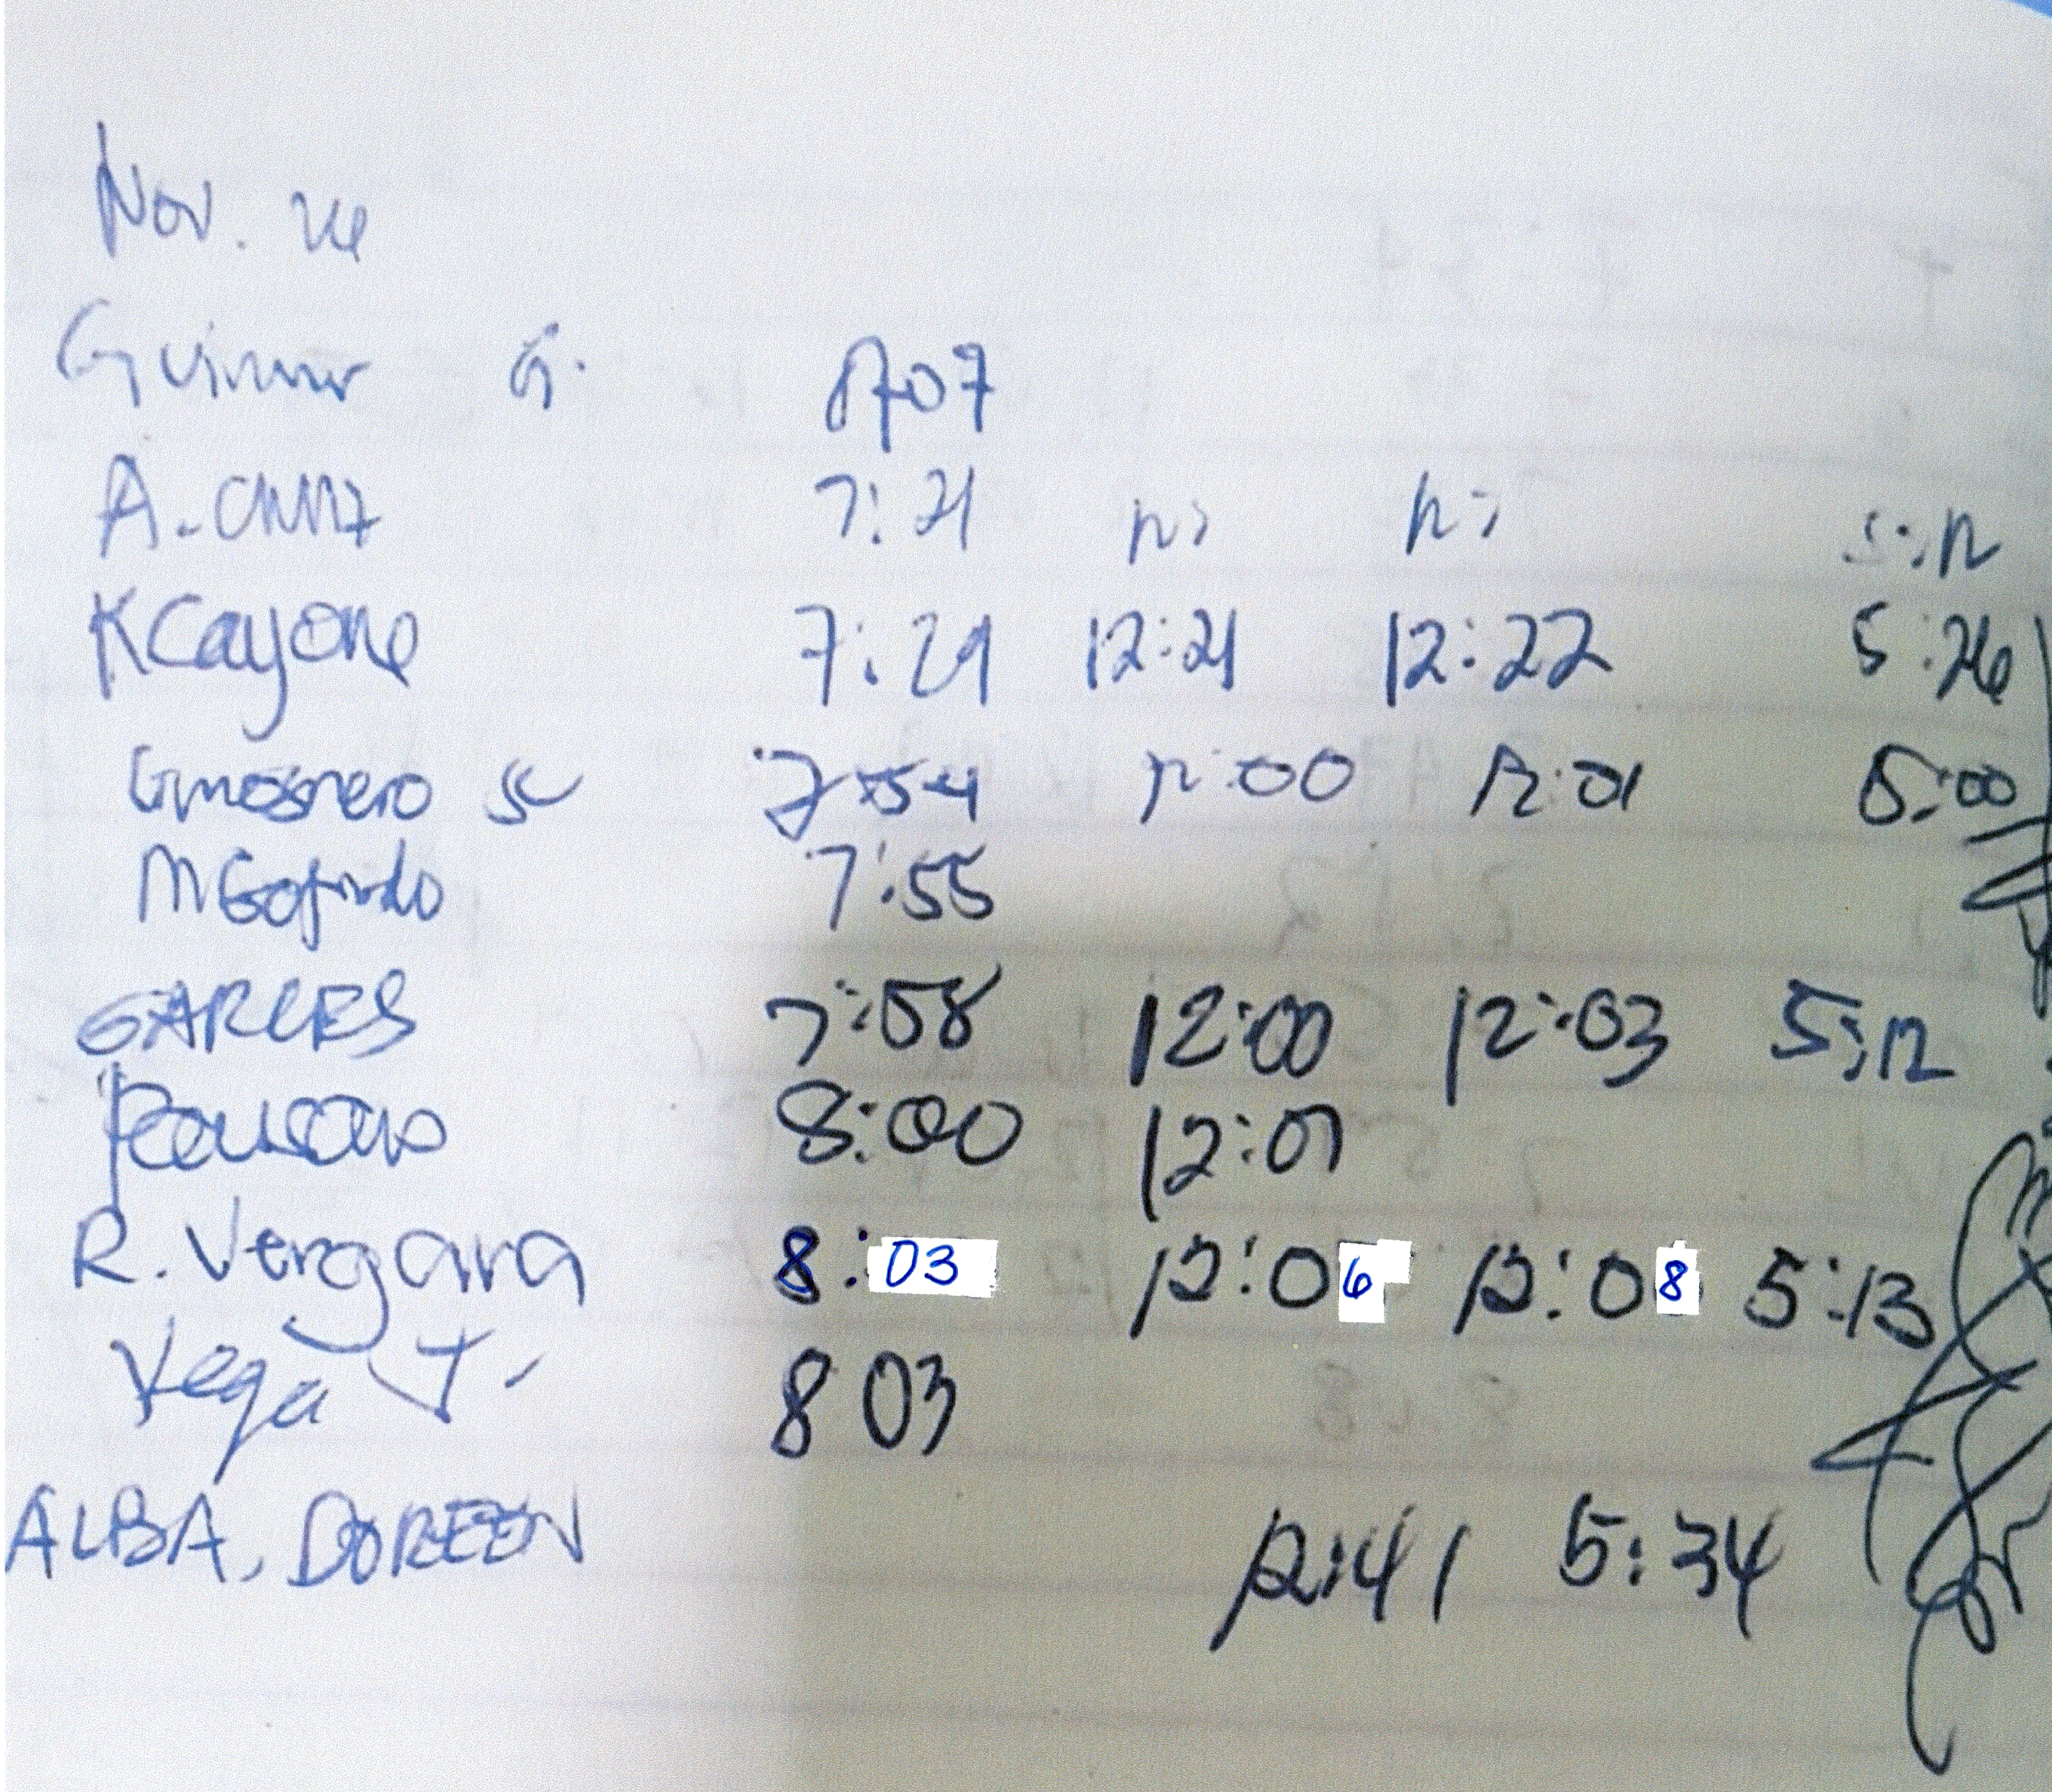 Nov. 24
G.
A. 7:21 12: 12: 5:12
KCayone 7:29 12:21 12:22 5:26
7:54 12:00 12:01 5:00
7:55
GARCES 7:58 12:00 12:03 5:12
8:00 12:01
R. Vergara 8:03 12:06 12:08 5:13
Vega J. 8 03
ALBA, DOREEN 12:41 5:34